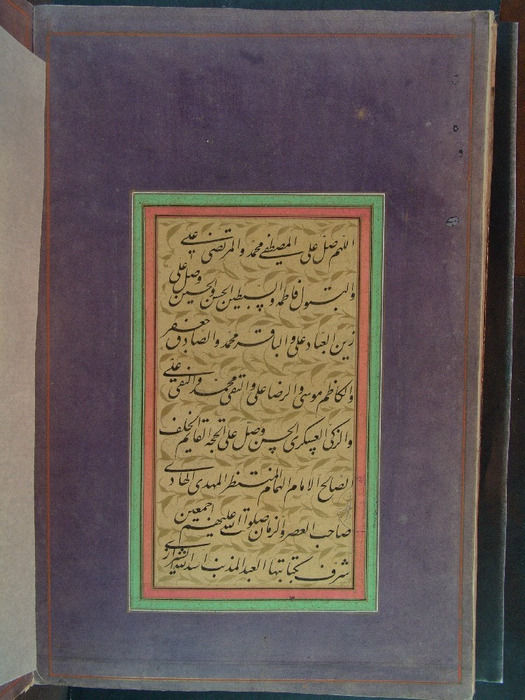 اللهم صل علی المصطفی محمد والمرتضی علی
والبتول فاطمه والسبطین الحسن والحسین وصل علی
زین العباد علی والباقر محمد والصادق جعفر
والکاظم موسی والرضا علی والتقی محمد والنقی علی
والزکی العسکری الحسن وصل علی الحجة القایم الخلف
الصالح الامام الهمام المنتظر المهدی الهادی
صاحب العصر والزمان صلوات الله علیهم اجمعین
شرف بکتابتها العبد المذنب اسدالله الشیرازی